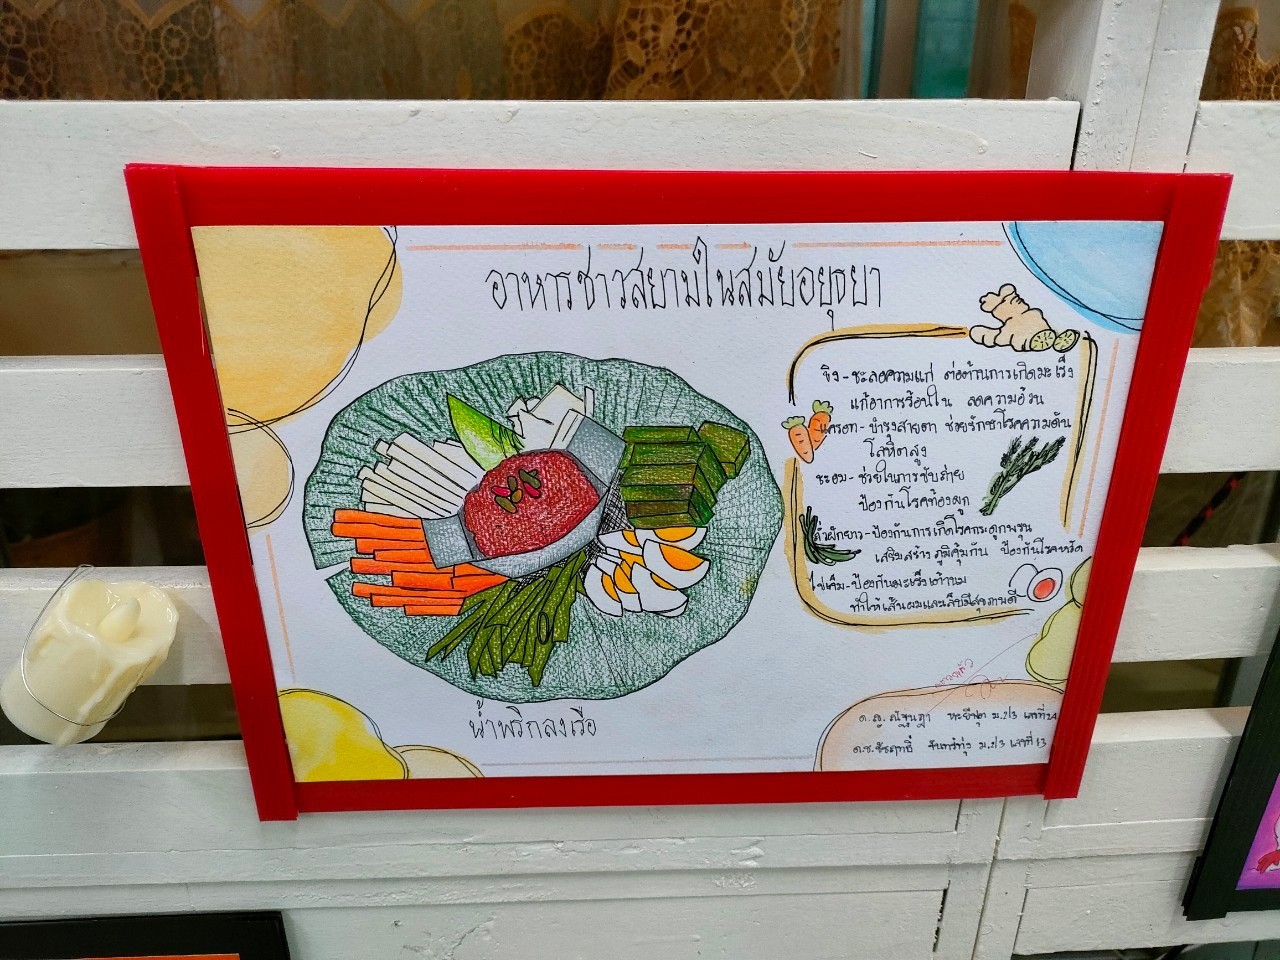 อาหารชาวสยามในสมัยอยุธยา
ขิง-ชะลอความแก่ ต่อต้านการเกิดมะเร็ง
แก้อาการร้อนใน ลดความอ้วน
แครอท-บำรุงสายตา ช่วยรักษาโรคความดัน
โลหิตสูง
ชะอม-ช่วยในการขับถ่าย
ป้องกันโรคท้องผูก
ถั่วฝักยาว-ป้องกันการเกิดโรคกระดูกพรุน
เสริมสร้างภูมิคุ้มกัน ป้องกันโรคหวัด
ไข่เค็ม-ป้องกันมะเร็งเต้านม
ทำให้เส้นผมและเล็บมีสุขภาพดี
น้ำพริกลงเรือ
ด.ญ.ณัฐนฎา ม.2/3 เลขที่
ด.ช. จันทร์ทุ่ง ม.2/3 เลขที่ 13